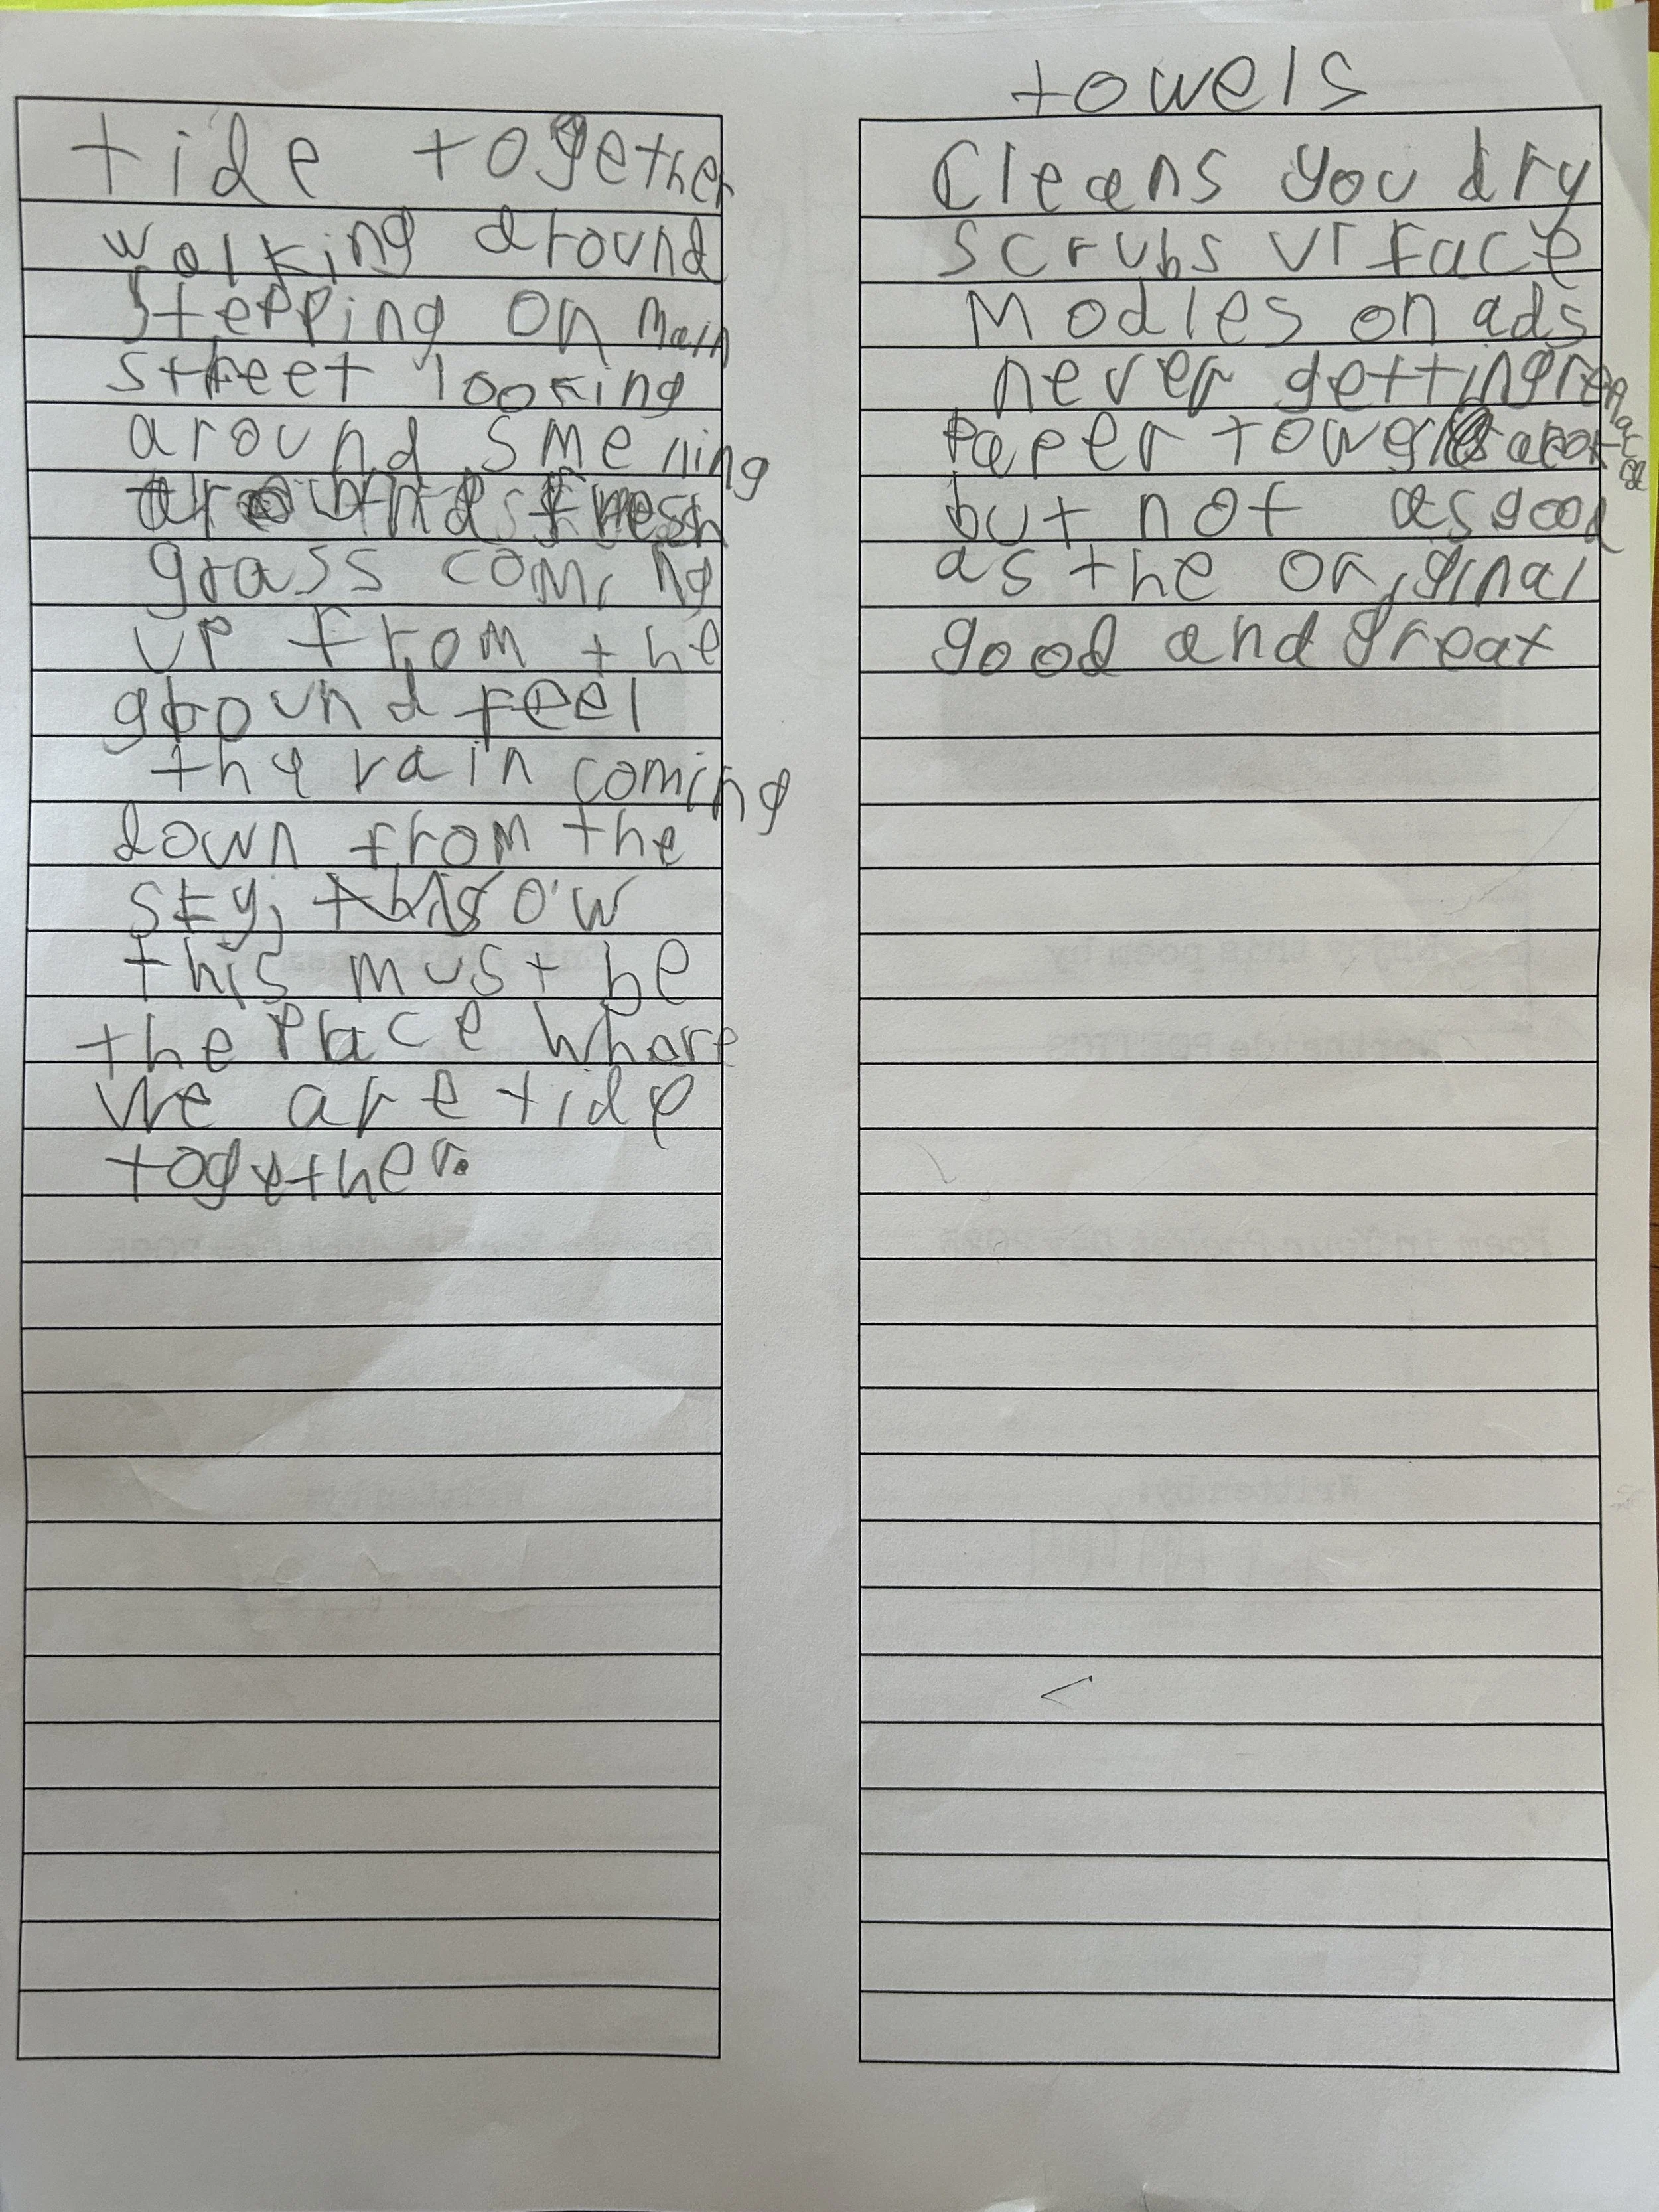 tide together
walking around
stepping on main
street looking
around smelling
fresh
grass coming
up from the
ground feel
the rain coming
down from the
sky, this ow
this must be
the place whare
we are tide
together.
towels
Cleans you dry
scrubs ur face
Modles on ads
never getting
Paper towels
but not as good
as the original
good and great